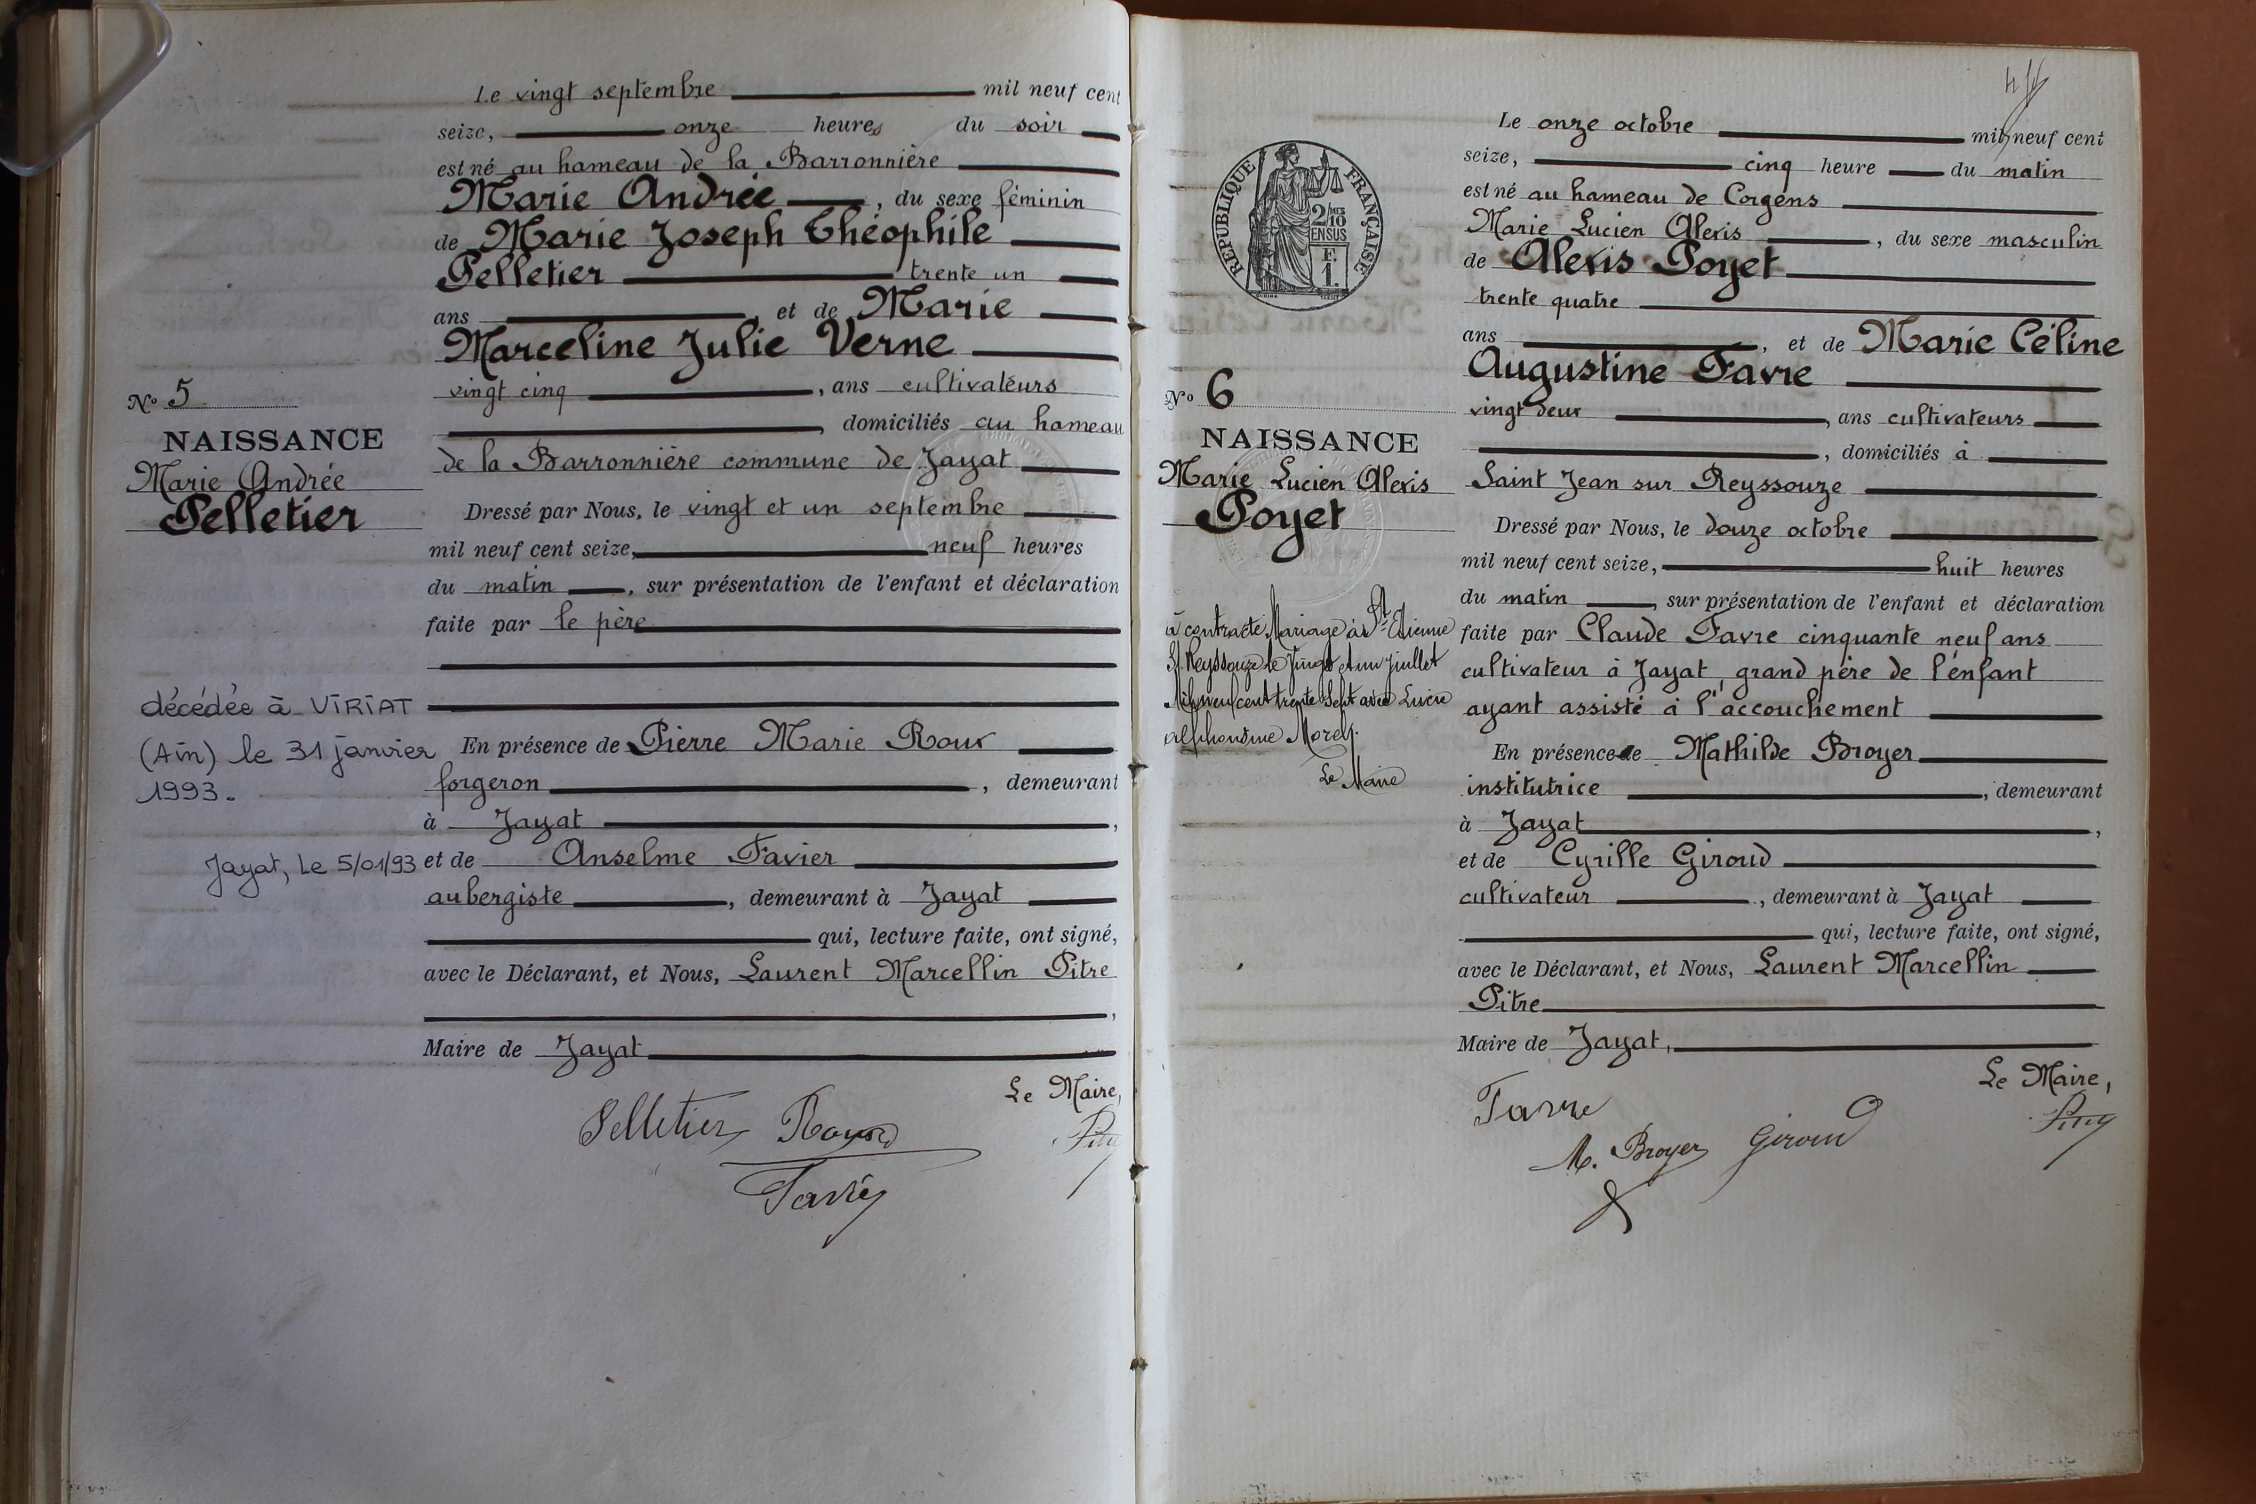 Le vingt septembre mil neuf cent
seize, onze heures du soir
est né au hameau de la Barronnière
Marie Andrée, du sexe féminin
de Marie Joseph Théophile
Pelletier trente un
ans et de Marie
Marceline Julie Verne
vingt cinq, ans cultivateurs
, domiciliés au hameau
de la Barronnière commune de Jayat
Dressé par Nous, le vingt et un septembre
mil neuf cent seize, neuf heures
du matin, sur présentation de l'enfant et déclaration
faite par le père
En présence de Pierre Marie Roux
forgeron, demeurant
à Jayat,
et de Anselme Favier
aubergiste, demeurant à Jayat
qui, lecture faite, ont signé,
avec le Déclarant, et Nous, Laurent Marcellin Pitre
,
Maire de Jayat
Le Maire,
Pelletier Roux
Favier
No 5
NAISSANCE
Marie Andrée
Pelletier
décédée à VIRIAT
(Ain) le 31 janvier
1993.
Jayat, Le 5/01/93
Le onze octobre mil neuf cent
seize, cinq heure du matin
est né au hameau de Corgens
Marie Lucien Alexis, du sexe masculin
de Alexis Poyet
trente quatre
ans, et de Marie Céline
Augustine Favre
vingt deux, ans cultivateurs
, domiciliés à
Saint Jean sur Reyssouze
Dressé par Nous, le douze octobre
mil neuf cent seize, huit heures
du matin, sur présentation de l'enfant et déclaration
faite par Claude Favre cinquante neuf ans
cultivateur à Jayat, grand père de l'enfant
ayant assisté à l'accouchement
En présence de Mathilde Broyer
institutrice, demeurant
à Jayat,
et de Cyrille Giroud
cultivateur, demeurant à Jayat
qui, lecture faite, ont signé,
avec le Déclarant, et Nous, Laurent Marcellin
Pitre
Maire de Jayat,
Le Maire,
Favre
M. Broyer Giroud
RÉPUBLIQUE FRANÇAISE
2/10
EN SUS
F.
1.
No 6
NAISSANCE
Marie Lucien Alexis
Poyet
a contracté Mariage à St Etienne
s/ Reyssouze le Vingt et un Juillet
Mil neuf cent trente Sept avec Lucie
alphonsine Morel.
Le Maire